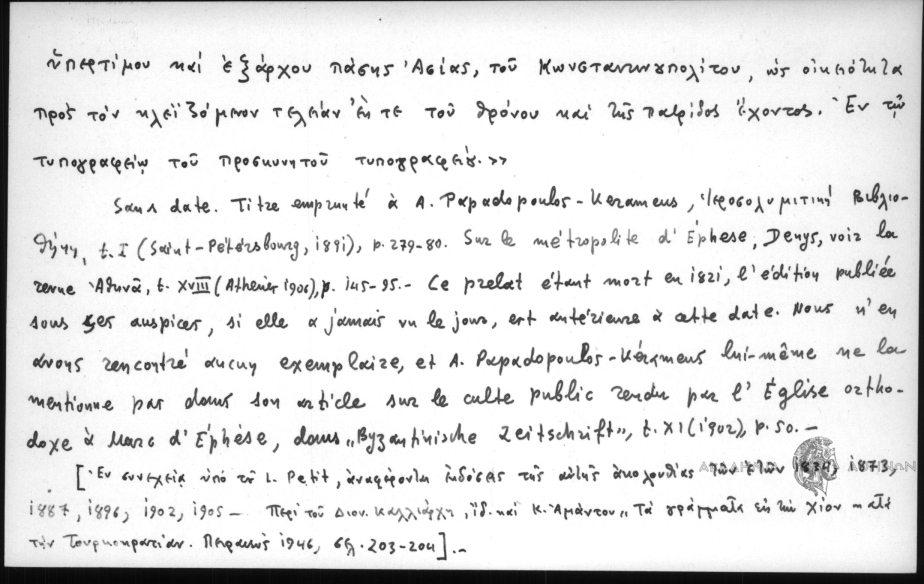 ὑπερτίμου καὶ ἐξάρχου πάσης Ἀσίας, τοῦ Κωνσταντινουπολίτου, ὡς οἰκειότητα
πρὸς τὸν κλεϊζόμενον τελείαν ἔκ τε τοῦ θρόνου καὶ τῆς πατρίδος ἔχοντος. Ἐν τῷ
τυπογραφείῳ τοῦ προσκυνητοῦ τυπογραφείου.>>
Sans date. Titre emprunté à A. Papadopoulos-Kerameus, Ἱεροσολυμιτικὴ Βιβλιο-
θήκη, t. I (Saint-Pétersbourg, 1891), p. 279-80. Sur le métropolite d'Éphèse, Denys, voir la
revue Ἀθηνᾶ, t. XVIII (Athènes 1906), p. 145-95.- Ce prélat étant mort en 1821, l'édition publiée
sous ses auspices, si elle a jamais vu le jour, est antérieure à cette date. Nous n'en
avons rencontré aucun exemplaire, et A. Papadopoulos-Kérameus lui-même ne la
mentionne pas dans son article sur le culte public rendu par l'Église ortho-
doxe à Marc d'Éphèse, dans "Byzantinische Zeitschrift", t. XI (1902), p. 50.-
[Ἐν συνεχείᾳ ὑπὸ τοῦ L. Petit, ἀναφέρονται ἐκδόσεις τῆς αὐτῆς ἀκολουθίας τῶν ἐτῶν 1834, 1873,
1887, 1896, 1902, 1905 - Περὶ τοῦ Διον. Καλλιάρχη, ἰδ. καὶ Κ. Ἀμάντου "Τὰ γράμματα εἰς τὴν Χίον κατὰ
τὴν Τουρκοκρατίαν. Πειραιεὺς 1946, σελ. 203-204].-